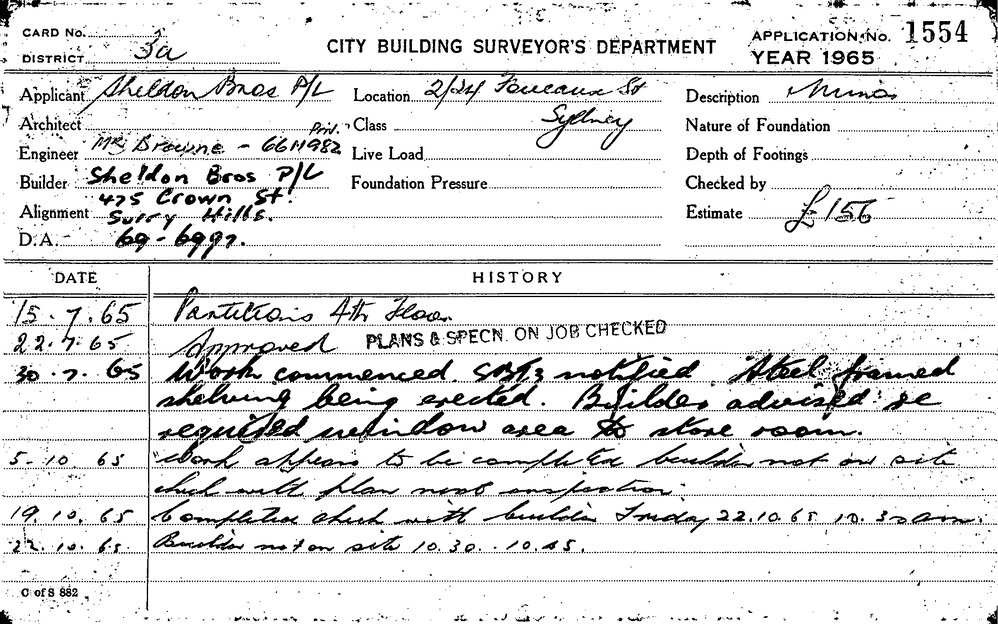 CARD No.
DISTRICT 3a
CITY BUILDING SURVEYOR'S DEPARTMENT
APPLICATION No. 1554
YEAR 1965
Applicant Sheldon Bros P/L
Location 2/24 Foveaux St
Sydney
Description Minor
Architect
Class
Nature of Foundation
Engineer Mr Browne - 6611982
Live Load
Depth of Footings
Builder Sheldon Bros P/L
475 Crown St.
Foundation Pressure
Checked by
Alignment Surry Hills.
Estimate £156
D.A. 69-6997.
DATE HISTORY
15.7.65 Partitions 4th Floor
22.7.65 Approved PLANS & SPECN. ON JOB CHECKED
30.7.65 Work commenced. notified Steel framed
shelving being erected. Builder advised re
required window area to store room.
5-10 65 Work appears to be completed builder not on site
check with plan next inspection.
19.10.65 Completed check with builder Friday 22.10.65 10.30am.
22.10.65 Builder not on site 10.30..10.45.
C of S 882